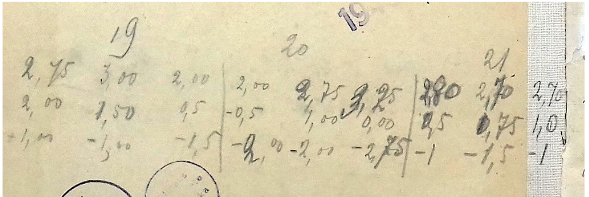 19 20 19 21
2,75 3,00 2,00 2,00 2,75 3,25 2,80 2,70 2,70
2,00 1,50 0,5 -0,5 1,00 0,00 0,5 0,75 1,0
-1,00 -1,00 -1,5 -2,00 -2,00 -2,75 -1 -1,5 -1